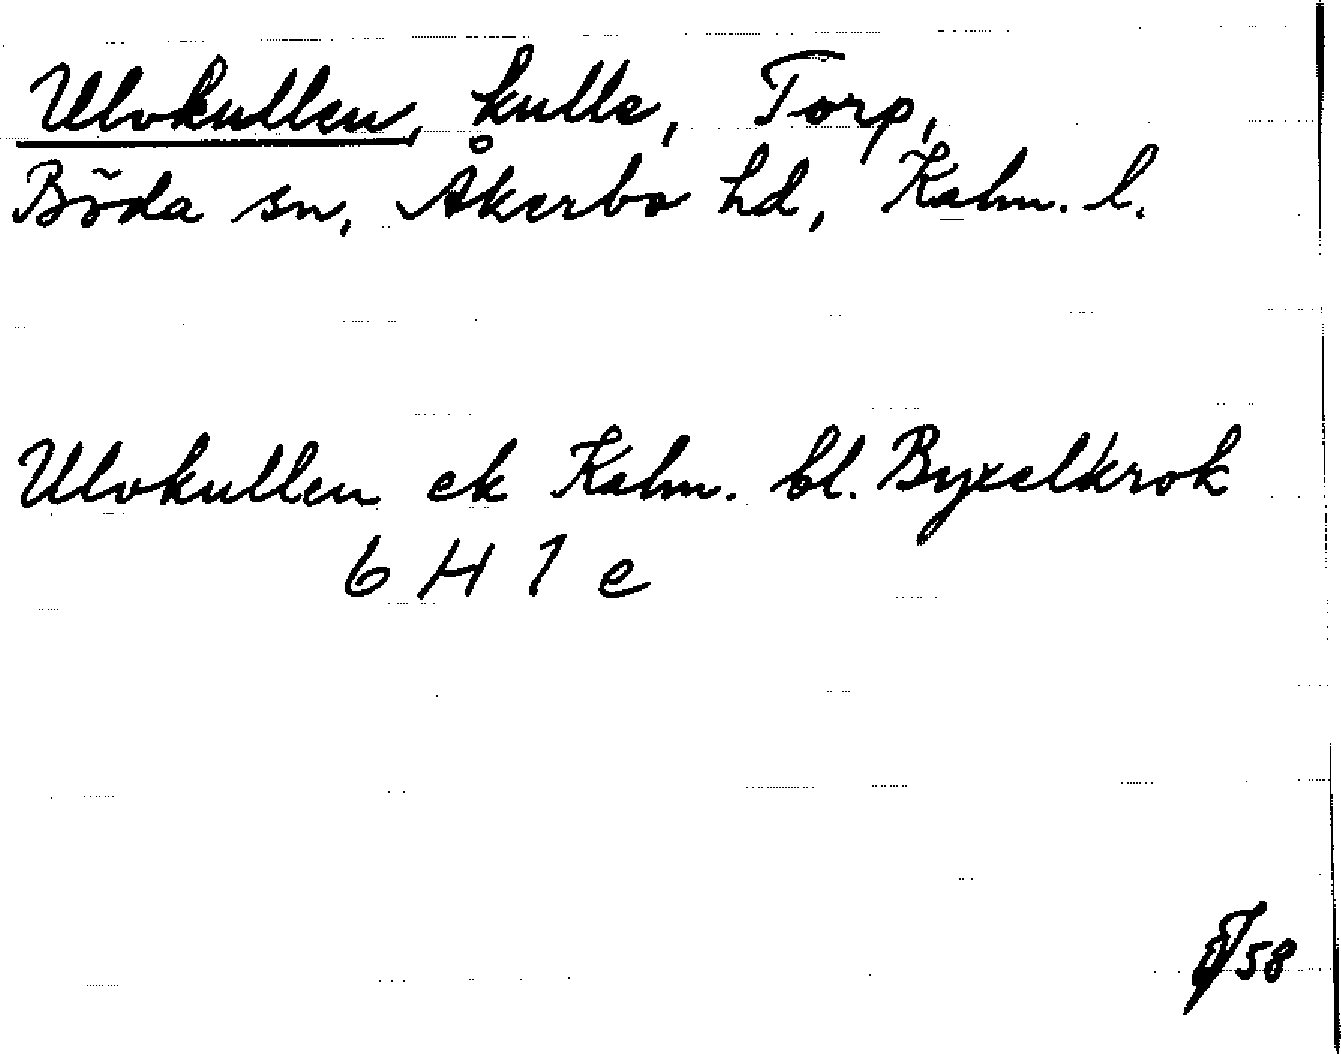 Ulvkullen, kulle, Torp,
Böda sn, Åkerbo hd, Kalm. l.
Ulvkullen ek Kalm. bl. Byxelkrok
6 H 1 e
58